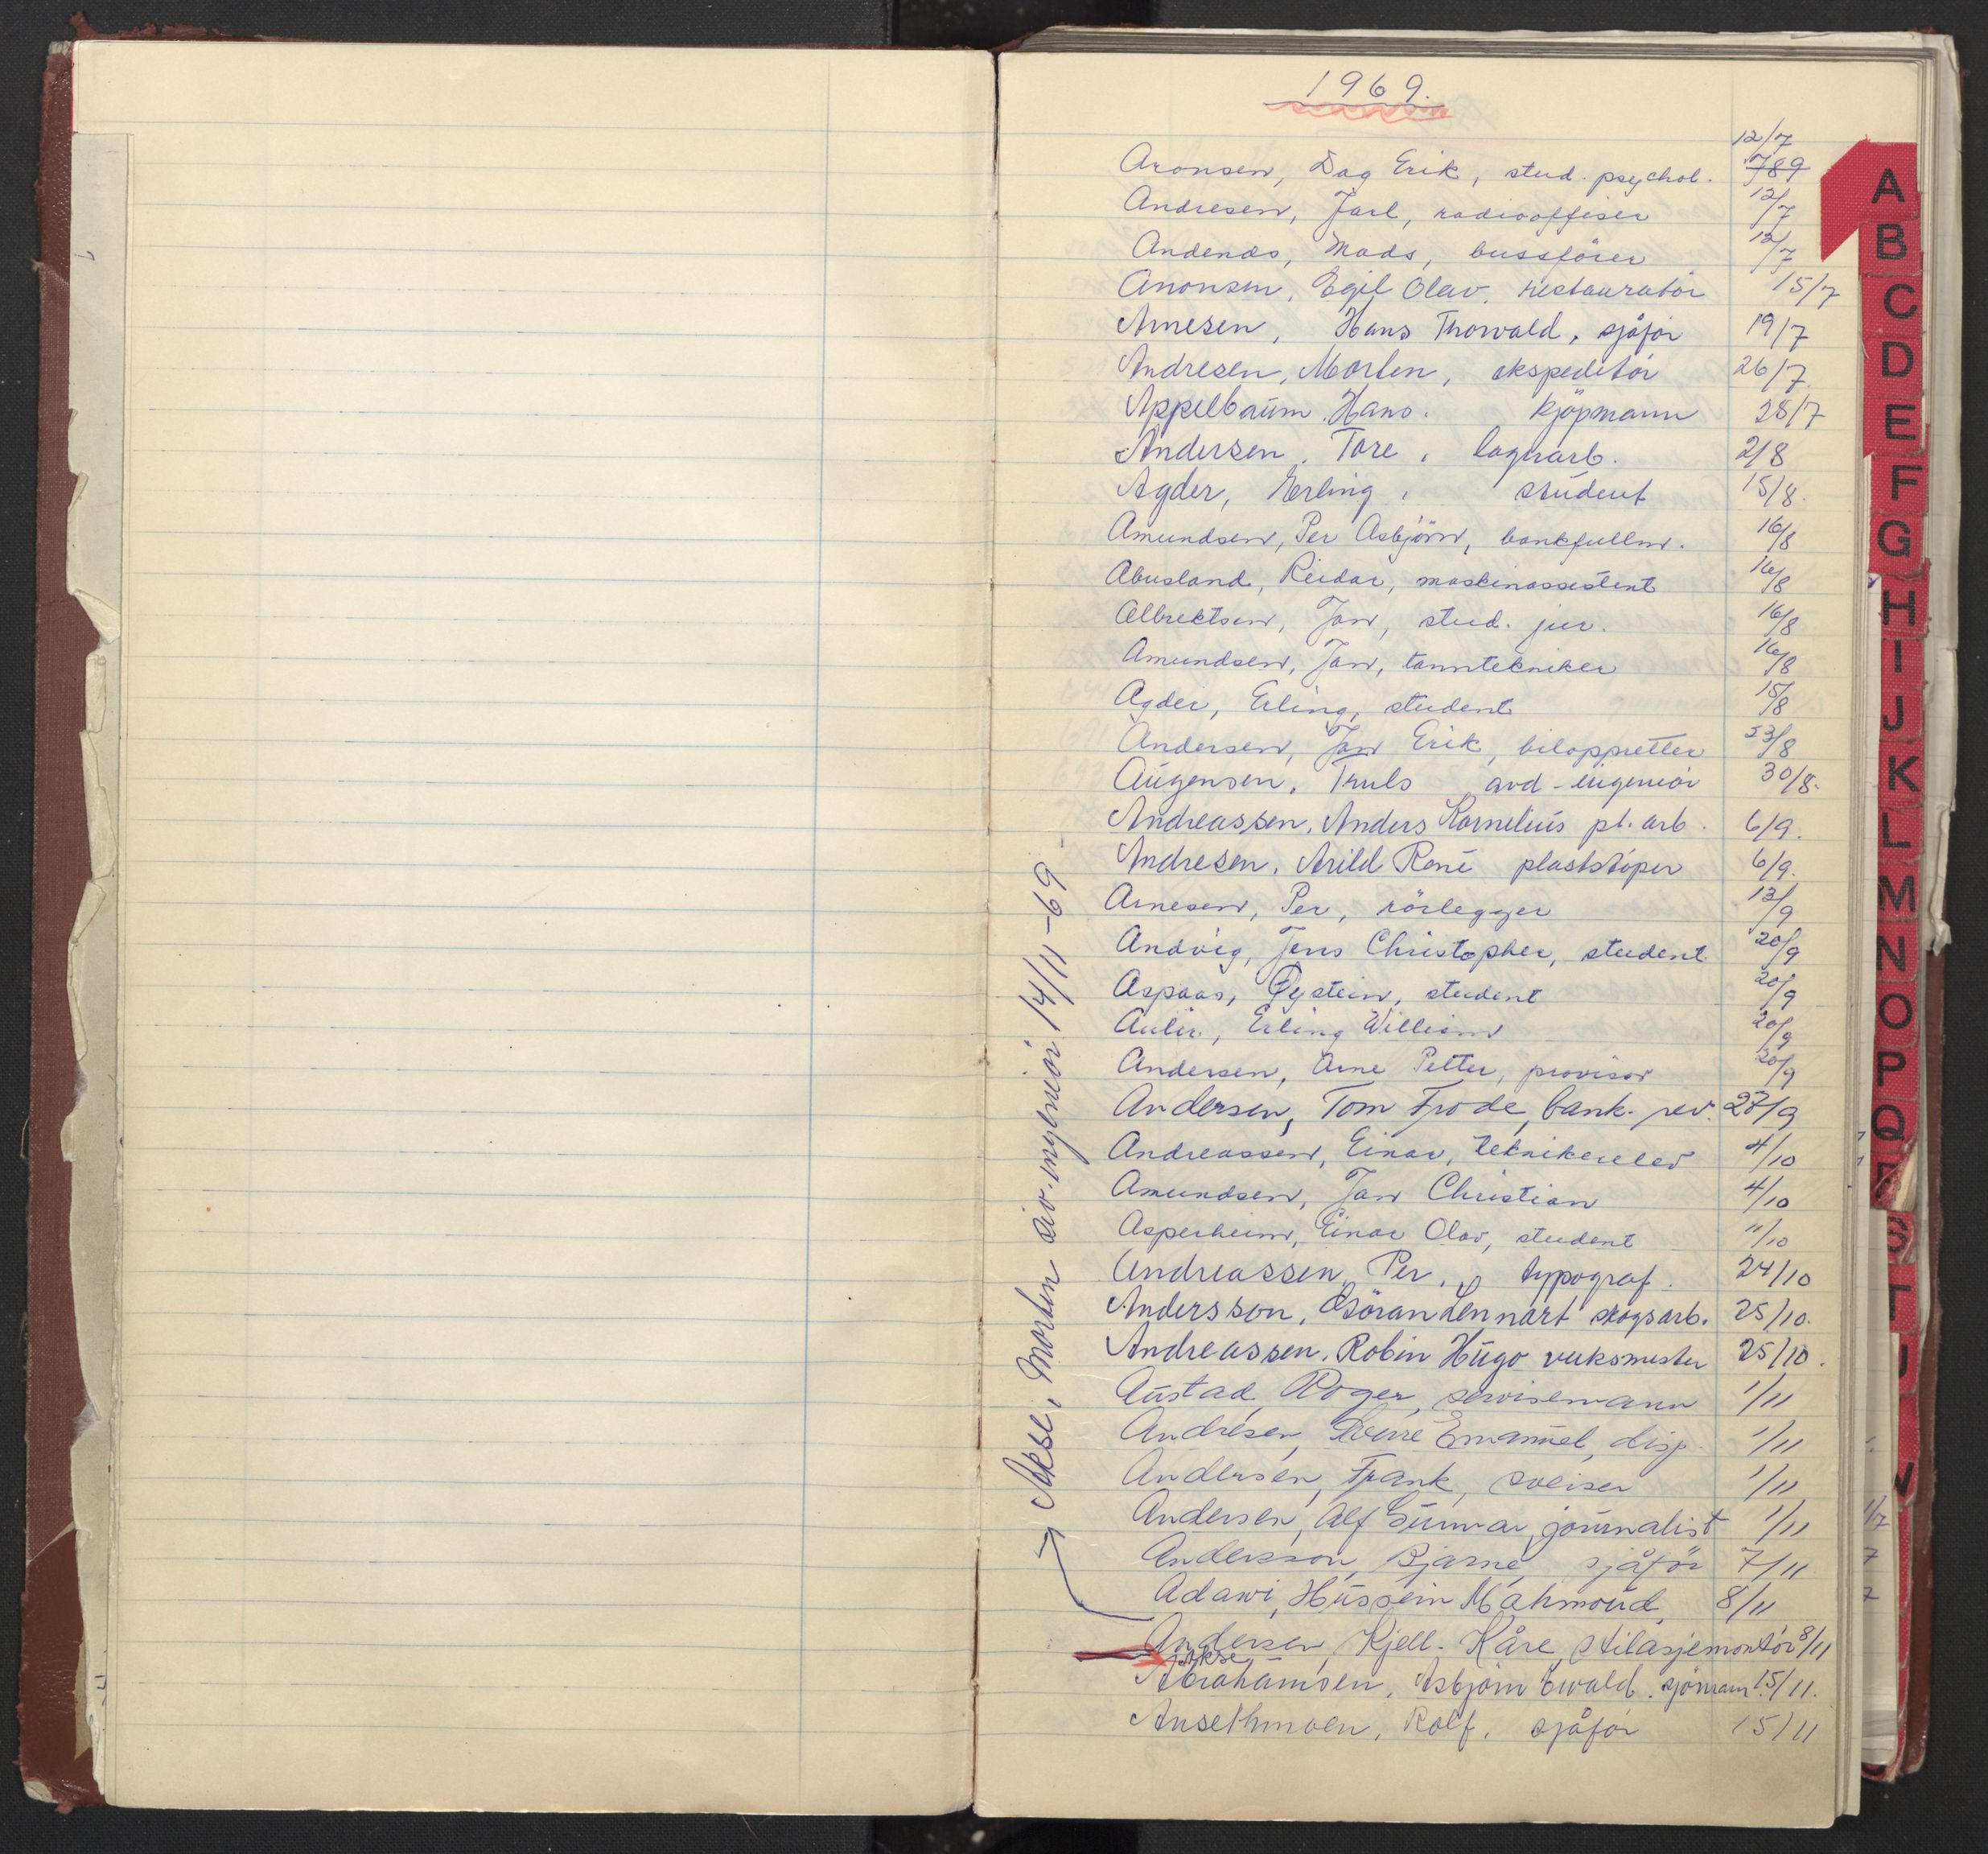 1969.
12/7
Aronsen, Dag Erik, stud. psychol. 789
Andresen, Jarl, radiooffiser 12/7
Andenæs, Mads, bussfører 12/7
Anonsen, Egil Olav, restauratör 15/7
Arnesen, Hans Thorvald, sjåför 19/7
Andresen, Morten, ekspeditör 26/7
Appelbaum, Hans. kjöpmann 28/7
Andersen, Tore, lagerarb. 2/8
Agder, Erling, student 15/8.
Amundsen, Per Asbjörn, bankfullm. 16/8
Abusland, Reidar, maskinassistent 16/8
Albrektsen, Jan, stud. jur. 16/8
Amundsen, Jan, tanntekniker 16/8
Agder, Erling, student 15/8
Andersen, Jan Erik, biloppretter 23/8
Augensen, Truls avd-ingeniör 30/8.
Andreassen, Anders Kornelius pl. arb. 6/9.
Andresen, Arild René plaststöper 6/9.
Arnesen, Per, rörlegger 13/9
Andvig, Jens Christopher, student 20/9
Aspaas, Øystein, student 20/9
Aulie, Erling William 20/9
Andersen, Arne Petter, provisor 20/9
Andersen, Tom Frode, bank. rev. 27/9
Andreassen, Einar, teknikerelev 4/10
Amundsen, Jan Christian 4/10
Asperheim, Einar Olav, student 11/10
Andreassen, Per, typograf. 24/10
Andersson, Göran Lennart skogsarb. 25/10.
Andreassen, Robin Hugo verksmester 25/10.
Austad, Roger, servisemann 1/11
Andresen, Sverre Emanuel, disp. 1/11
Andersen, Frank, sveiser 1/11
Andersen, Alf Gunnar, journalist 1/11
Andersson, Bjarne, sjåför 7/11
Adawi, Hussein Mahmoud, 8/11
Andersen, Kjell-Kåre, stilasjemontör 8/11
Akse
Abrahamsen, Asbjörn Ewald. sjömann 15/11.
Ansethmoen, Rolf. sjåför 15/11
Akse, Morten siv. ingeniör 14/11-69-
A
B
C
D
E
F
G
H
I
J
K
L
M
N
O
P
Q
R
S
T